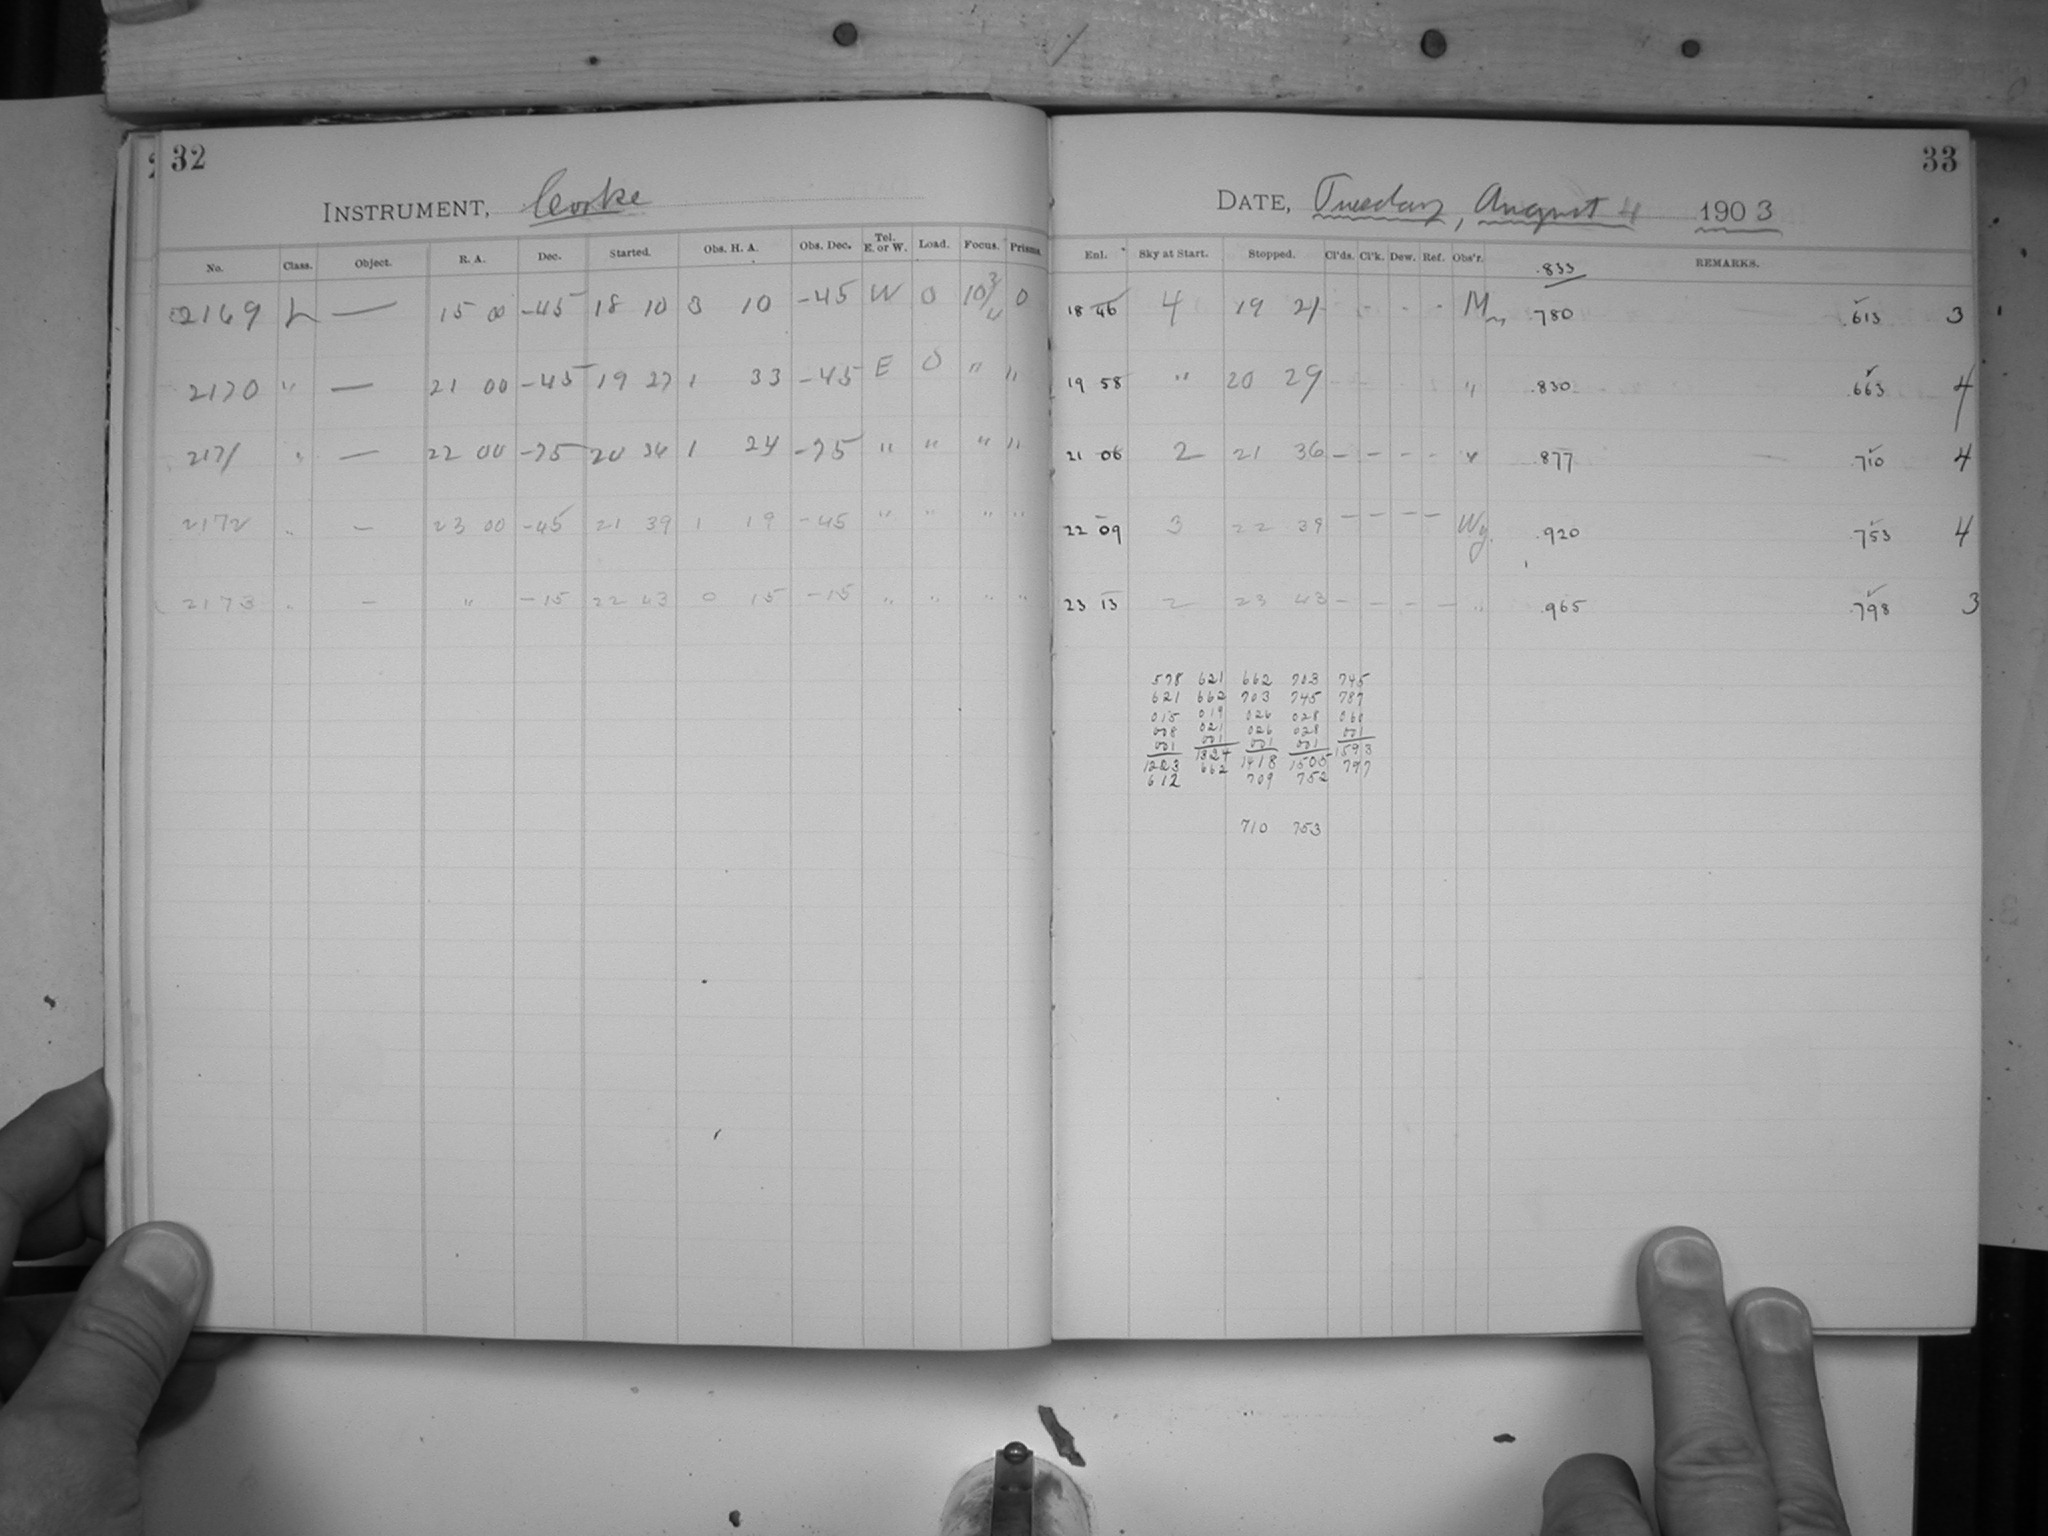 32
INSTRUMENT, Cooke
No. Class. Object. R. A. Dec. Started. Obs. H. A. Obs. Dec. Tel. E. or W. Load. Focus. Prisms.
2169 L — 15 00 -45 18 10 3 10 -45 W 0 10 3/4 0
2170 " — 21 00 -45 19 27 1 33 -45 E 0 " "
2171 " — 22 00 -75 20 34 1 24 -75 " " " "
2172 " — 23 00 -45 21 39 1 19 -45 " " " "
2173 " — " -15 22 43 0 15 -15 " " " "
33
DATE, Tuesday, August 4 1903
Enl. Sky at Start. Stopped. Cl'ds. Cl'k. Dew. Ref. Obs'r. REMARKS.
.833
18 46 4 19 21 - - - - M .780 .613 3
19 58 " 20 29 - - - - " .830 .663 4
21 06 2 21 36 - - - - " .877 .710 4
22 09 3 22 39 - - - - Wy. .920 .753 4
23 13 2 23 43 - - - - " .965 .798 3
578 621 662 703 745
621 662 703 745 787
015 019 026 028 060
008 021 026 028 001
001 001 001 001 1593
1223 1324 1418 1505 797
612 662 709 752
710 753